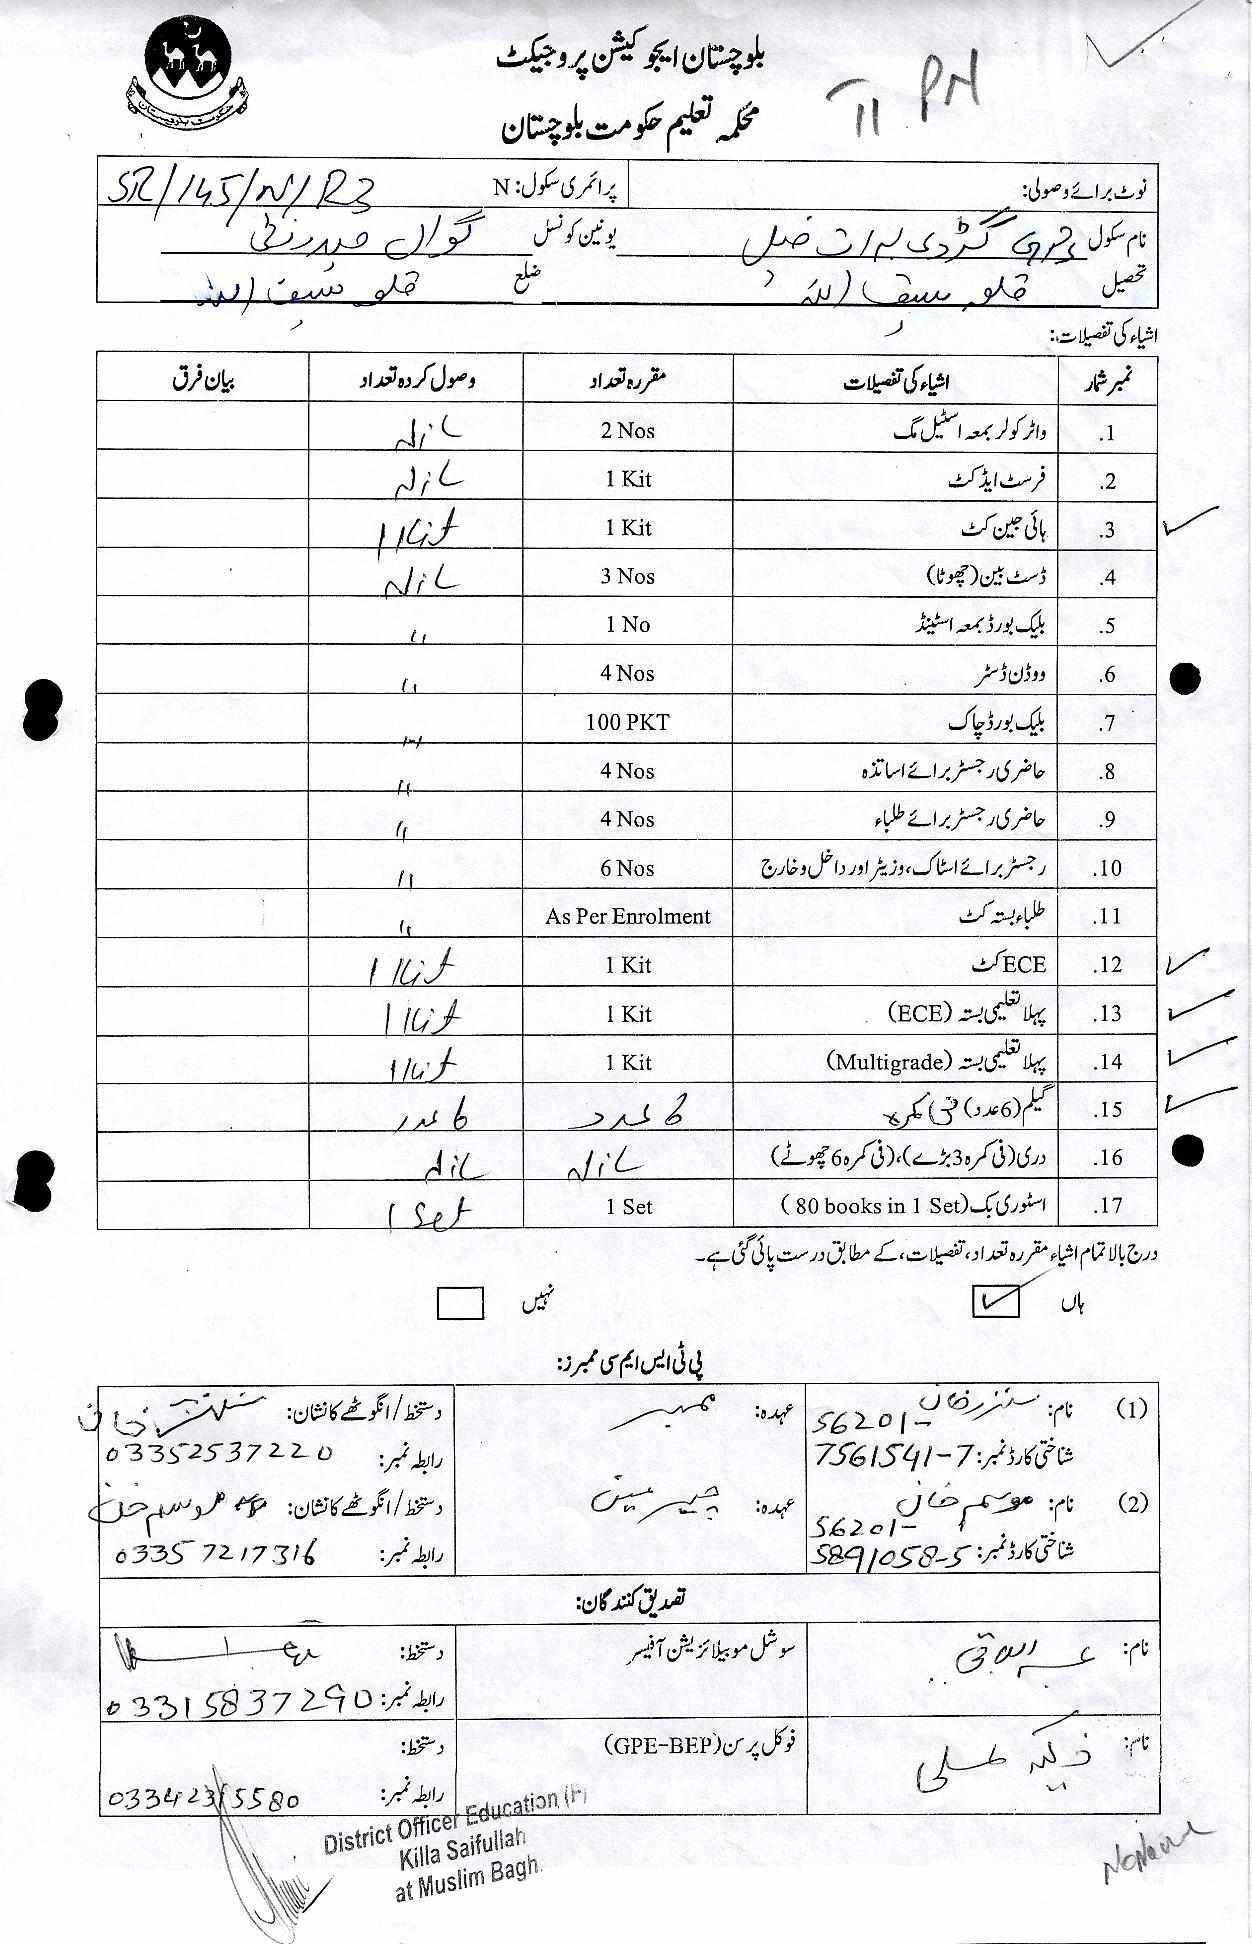 بلوچستان ایجوکیشن پروجیکٹ
محکمہ تعلیم حکومت بلوچستان
II PN
نوٹ برائے وصولی: پرائمری سکول: N SR/145/N/R3
نام سکول یونین کونسل گوال حیدرزئی
تحصیل قلعہ سیف اللہ ضلع قلعہ سیف اللہ
اشیاء کی تفصیلات:
نمبر شمار اشیاء کی تفصیلات مقررہ تعداد وصول کردہ تعداد بیان فرق
1. واٹر کولر بمعہ اسٹیل مگ 2 Nos Nil
2. فرسٹ ایڈ کٹ 1 Kit Nil
3. ہائی جین کٹ 1 Kit 1 Kit
4. ڈسٹ بین (چھوٹا) 3 Nos Nil
5. بلیک بورڈ بمعہ اسٹینڈ 1 No "
6. ووڈن ڈسٹر 4 Nos "
7. بلیک بورڈ چاک 100 PKT "
8. حاضری رجسٹر برائے اساتذہ 4 Nos "
9. حاضری رجسٹر برائے طلباء 4 Nos "
10. رجسٹر برائے اسٹاک، وزیٹر اور داخل و خارج 6 Nos "
11. طلباء بستہ کٹ As Per Enrolment "
12. ECE کٹ 1 Kit 1 Kit
13. پہلا تعلیمی بستہ (ECE) 1 Kit 1 Kit
14. پہلا تعلیمی بستہ (Multigrade) 1 Kit 1 Kit
15. گیلم (6 عدد) فی کمرہ 6 عدد 6 عدد
16. دری (فی کمرہ 3 بڑے)، (فی کمرہ 6 چھوٹے) Nil Nil
17. اسٹوری بک (80 books in 1 Set) 1 Set 1 Set
درج بالا تمام اشیاء مقررہ تعداد، تفصیلات، کے مطابق درست پائی گئی ہے۔
ہاں ✓ نہیں
پی ٹی ایس ایم سی ممبرز:
(1) نام: عہدہ: ممبر دستخط/انگوٹھے کا نشان:
شناختی کارڈ نمبر: 56201-7561541-7 رابطہ نمبر: 03352537220
(2) نام: موسم خان عہدہ: چیئرمین دستخط/انگوٹھے کا نشان: موسم خان
شناختی کارڈ نمبر: 56201-5891058-5 رابطہ نمبر: 03357217316
تصدیق کنندگان:
نام: عبدالباقی سوشل موبیلائزیشن آفیسر دستخط:
رابطہ نمبر: 03315837290
نام: فوکل پرسن (GPE-BEP) دستخط:
رابطہ نمبر: 03342315580
District Officer Education (F)
Killa Saifullah
at Muslim Bagh.